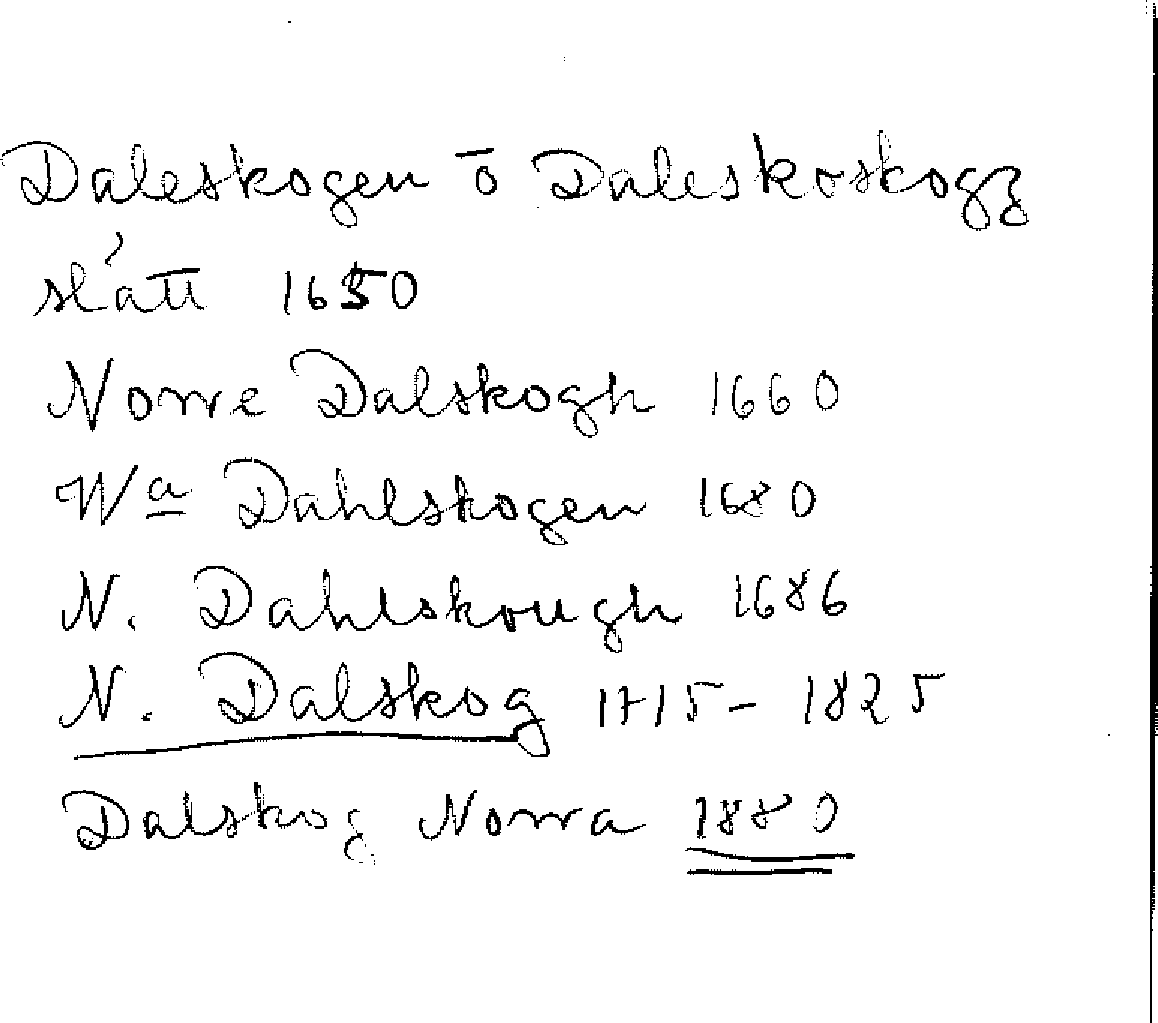 Daleskogen ō Daleskoskogz
slått 1650
Norre Dalskogh 1660
Wa Dahlskogen 1680
N. Dahlskough 1686
N. Dalskog 1715 - 1825
Dalskog Norra 1880